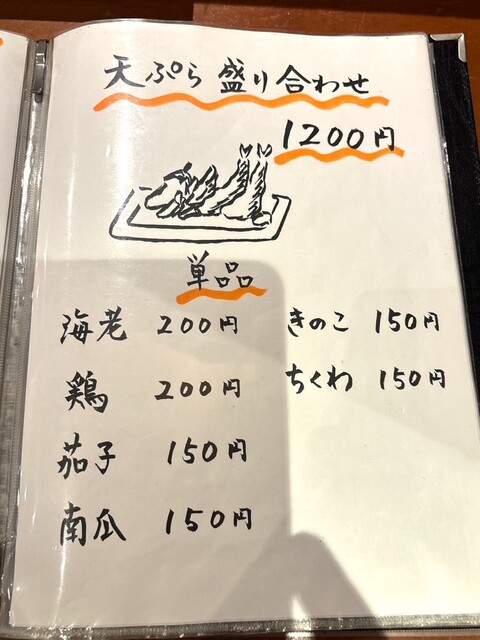 天ぷら 盛り合わせ
1200円
単品
海老 200円
鶏 200円
茄子 150円
南瓜 150円
きのこ 150円
ちくわ 150円